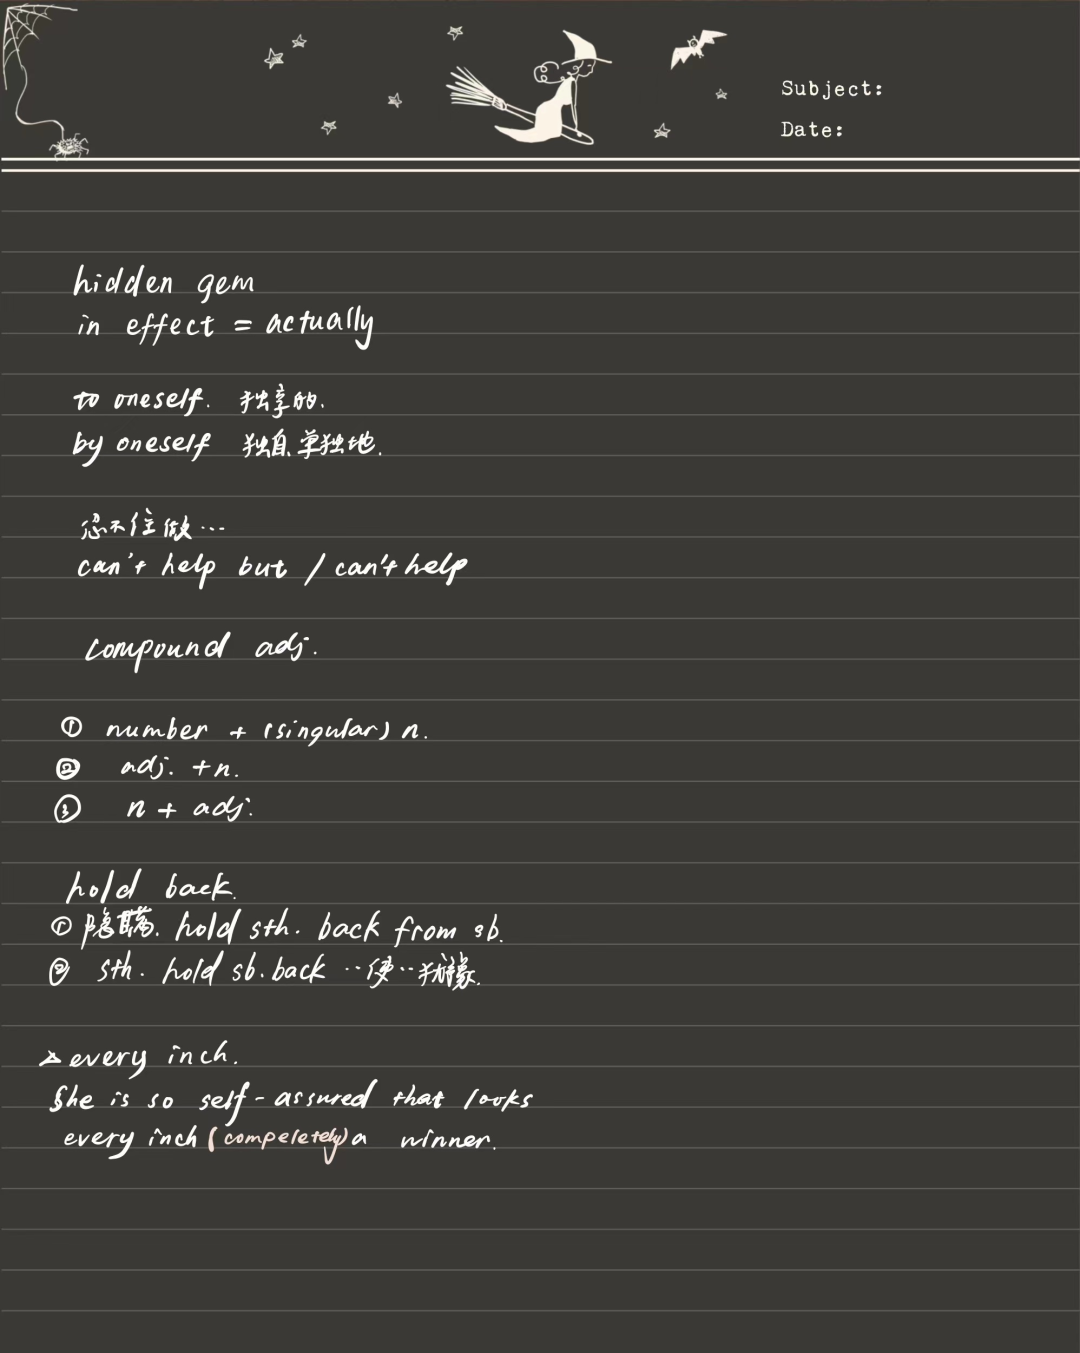 Subject:
Date:
hidden gem
in effect = actually
to oneself. 独享的.
by oneself 独自.单独地.
忍不住做...
can't help but / can't help
compound adj.
① number + (singular) n.
② adj. + n.
③ n + adj.
hold back.
① 隐瞒. hold sth. back from sb.
② sth. hold sb. back ··使··犹豫.
every inch.
She is so self-assured that looks
every inch (compeletely) a winner.